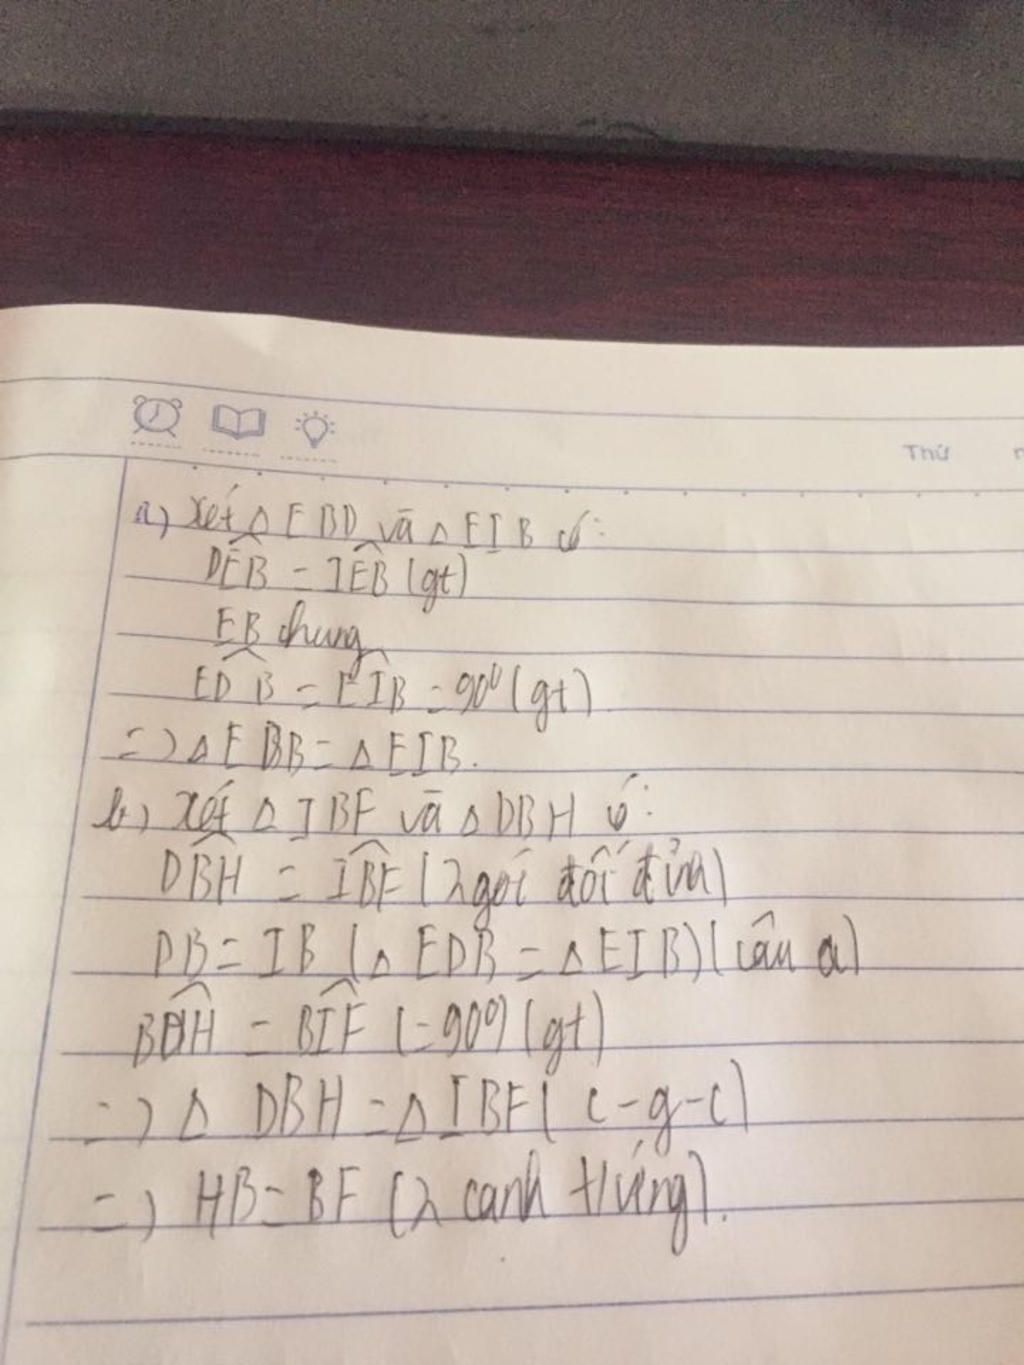 Thứ
a) Xét △ EBD và △ EIB có:
DÊB = IÊB (gt)
EB chung
EDB̂ = EÎB = 90⁰ (gt)
=> △ EBB = △ EIB.
b) Xét △ IBF và △ DBH có:
DB̂H = IB̂F (2 góc đối đỉnh)
DB = IB (△ EDB = △ EIB) (câu a)
BD̂H = BÎF (=90⁰) (gt)
=> △ DBH = △ IBF (c-g-c)
=> HB = BF (2 cạnh t/ứng).